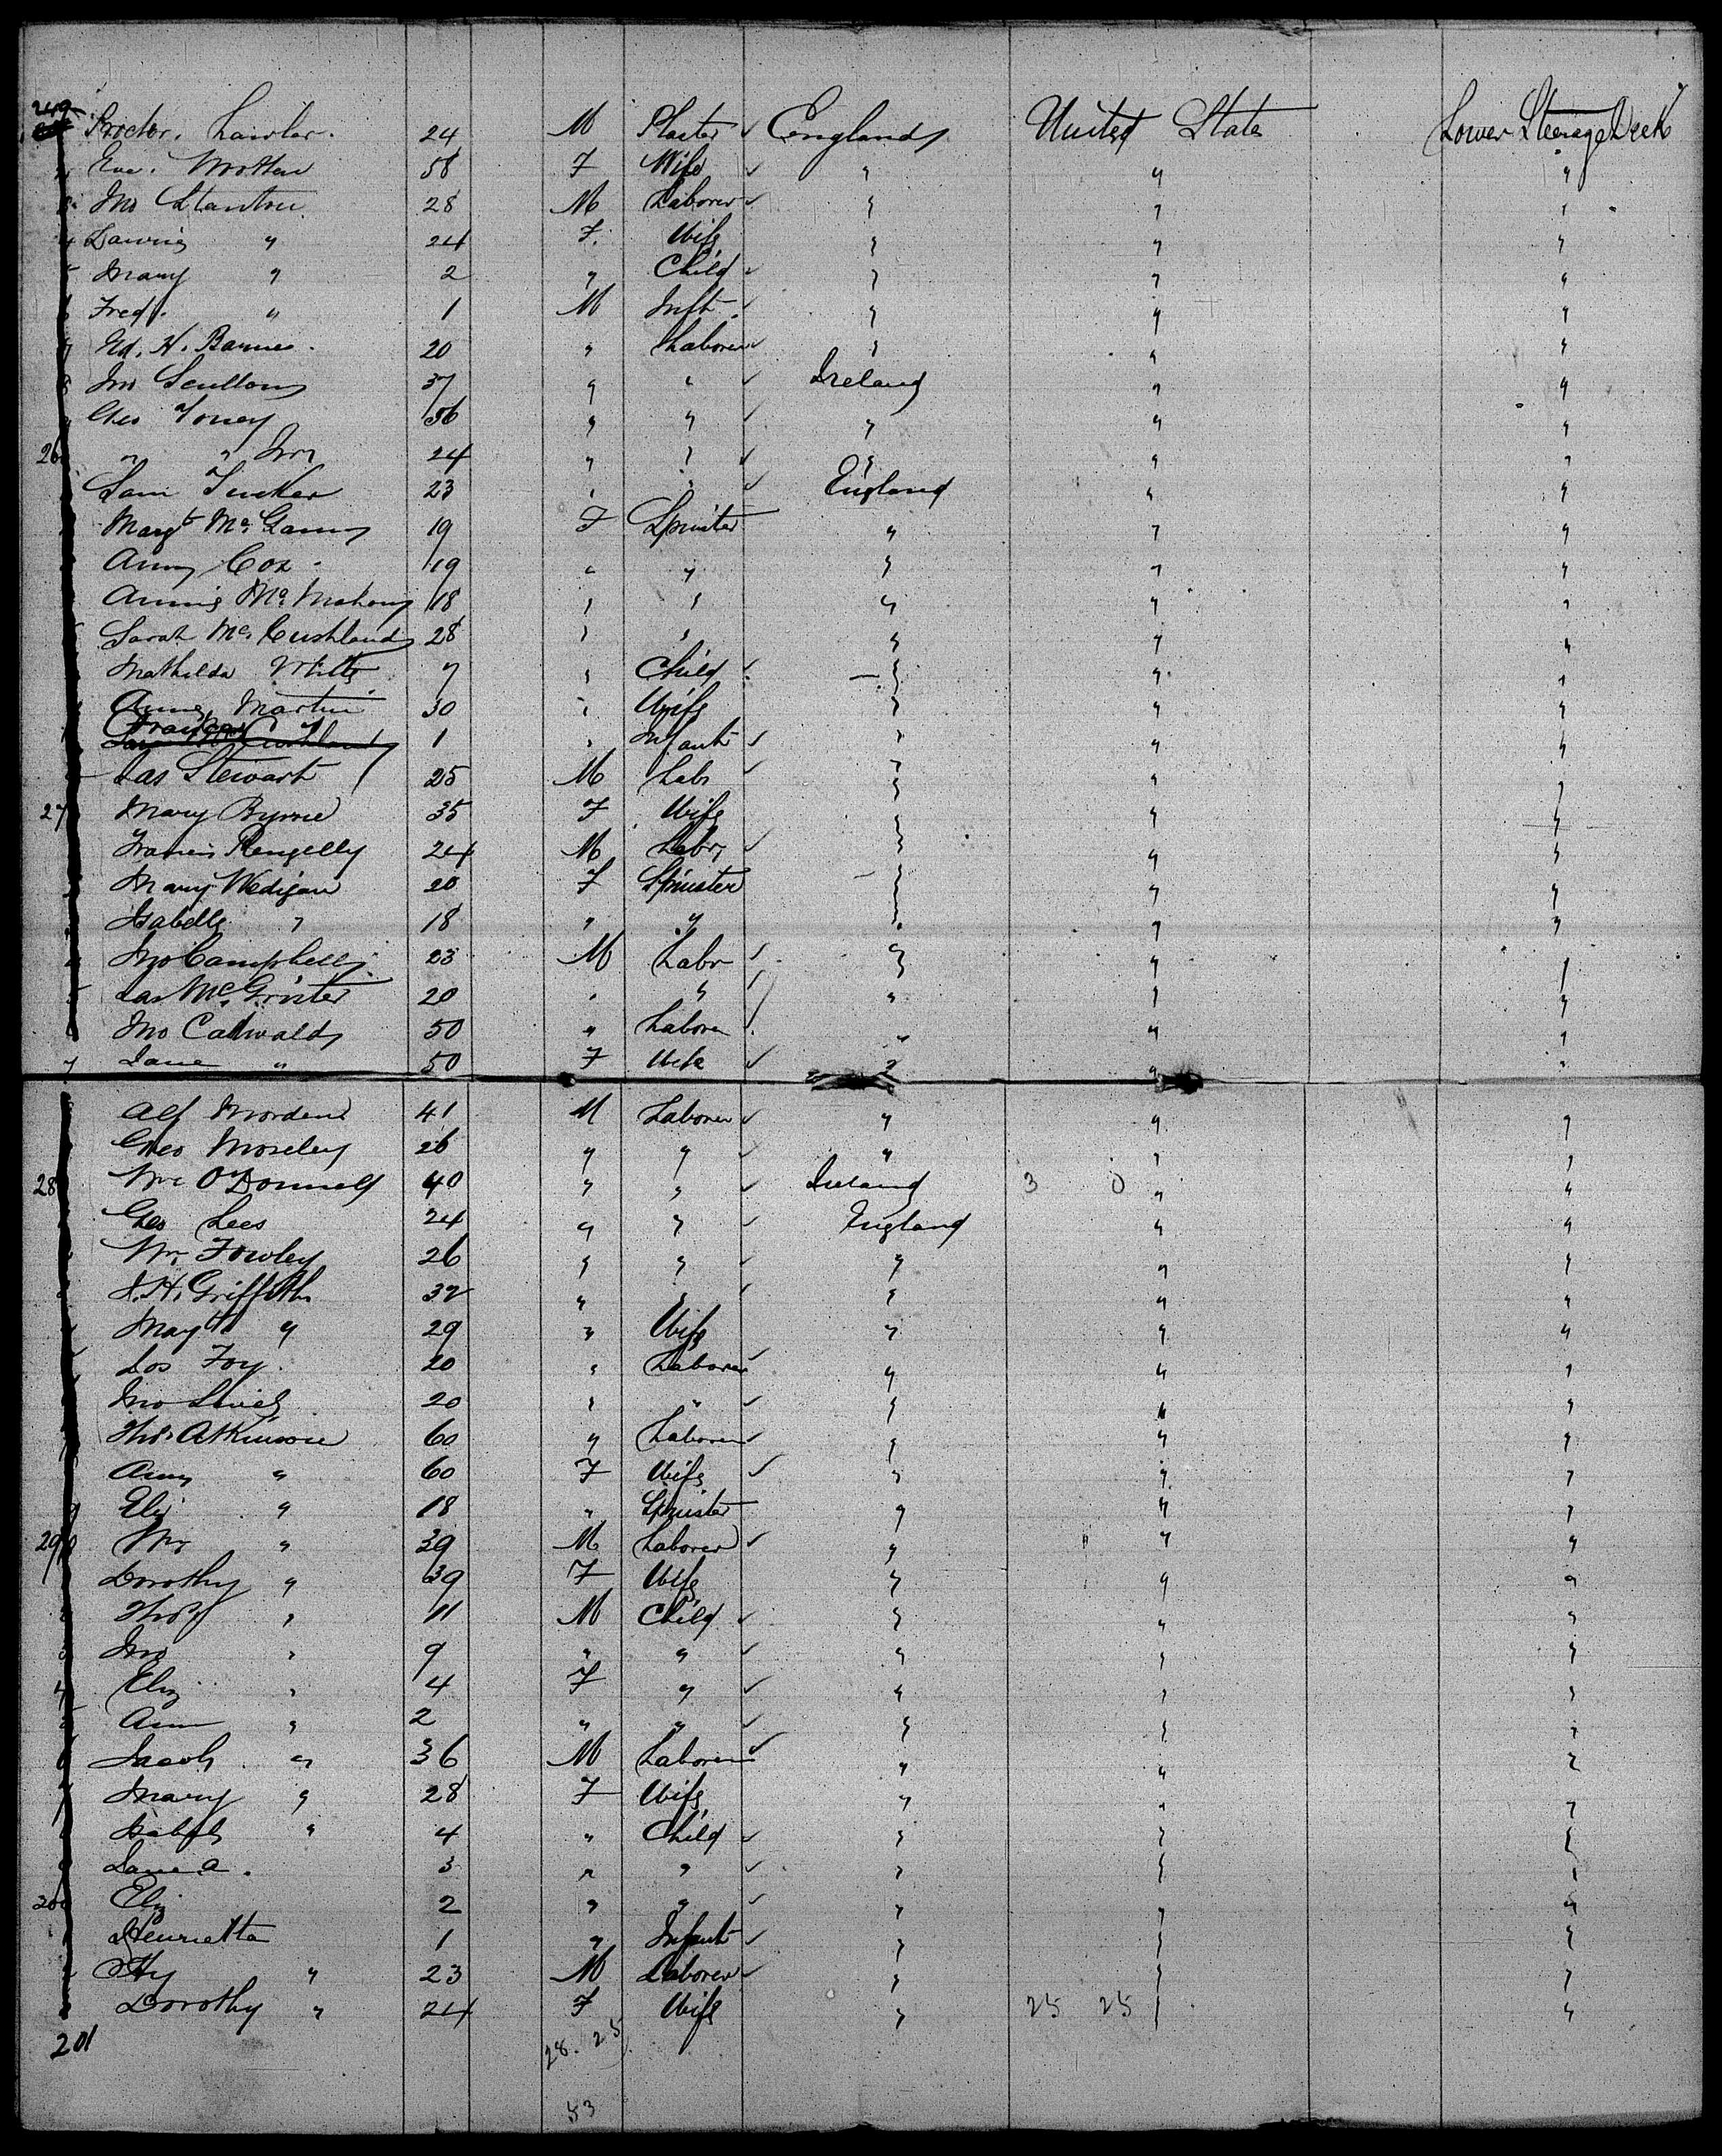 249 Proctor. Lawler. 24 M Plaster ✓ England United States Lower Steerage Deck
Eva. Wotton 58 F Wife ✓ " " "
3 Jno Stanton 28 M Laborer ✓ " " "
4 " 24 F. Wife " " "
5 Mary " 2 " Child ✓ " " "
6 Fred. " 1 M Inft. ✓ " " "
7 Ed. H. Barnes. 20 " Laborer ✓ " " "
8 Jno Scullon 37 " " ✓ Ireland " "
9 Geo Toney 56 " " ✓ " " "
26 " " Jnr 24 " " ✓ " " "
Sam Tucker 23 " " ✓ England " "
Margt Mc 19 F Spinster " " "
Amy Cox 19 " " " " "
Annie Mc Mahony 18 " " " " "
Sarah Mc. Cushland 28 " " " " "
Mathilda White 7 " Child ✓ " " "
Anne Martin 30 " Wife " " "
Frances " 1 " Infant ✓ " " "
Jas Stewart 25 M Labr ✓ " " "
27 Mary Byrne 35 F Wife " " "
Francis Pengelly 24 M Labr ✓ " " "
Mary Wedigan 20 F Spinster " " "
Isabella " 18 " " " " "
4 Jno Campbell 23 M Labr ✓ " " "
5 Jas Mc. Grister 20 " " ✓ " " "
6 Jno Cadwald 50 " Laborer ✓ " " "
7 Jane " 50 F Wife ✓ " " "
Alf Morden 41 M Laborer ✓ " " "
Geo Moseley 26 " " ✓ " " "
28 Wm O'Donnell 40 " " ✓ Ireland 3 0 " "
Geo Lees 24 " " ✓ England " "
Wm Fowley 26 " " ✓ " " "
J. H. Griffith 32 " " ✓ " " "
Magt " 29 " Wife " " "
Jos Foy. 20 " Laborer ✓ " " "
Jno 20 " " ✓ " " "
Thos Atkinson 60 " Laborer ✓ " " "
Amy " 60 F Wife ✓ " " "
9 Eliz " 18 " Spinster " " "
290 Wm " 39 M Laborer ✓ " " "
Dorothy " 39 F Wife " " "
Thos " 11 M Child ✓ " " "
3 Jno " 9 " " ✓ " " "
4 Eliz " 4 F " ✓ " " "
5 Ann " 2 " " ✓ " " "
6 Jacob " 36 M Laborer ✓ " " "
7 Mary " 28 F Wife " " "
Isabel " 4 " Child ✓ " " "
9 Jane A. 3 " " ✓ " " "
200 Eliz 2 " " ✓ " " "
1 Henrietta 1 " Infant ✓ " " "
Hy " 23 M Laborer ✓ " " "
Dorothy " 24 F Wife " 25 25 " "
201 28. 25
53